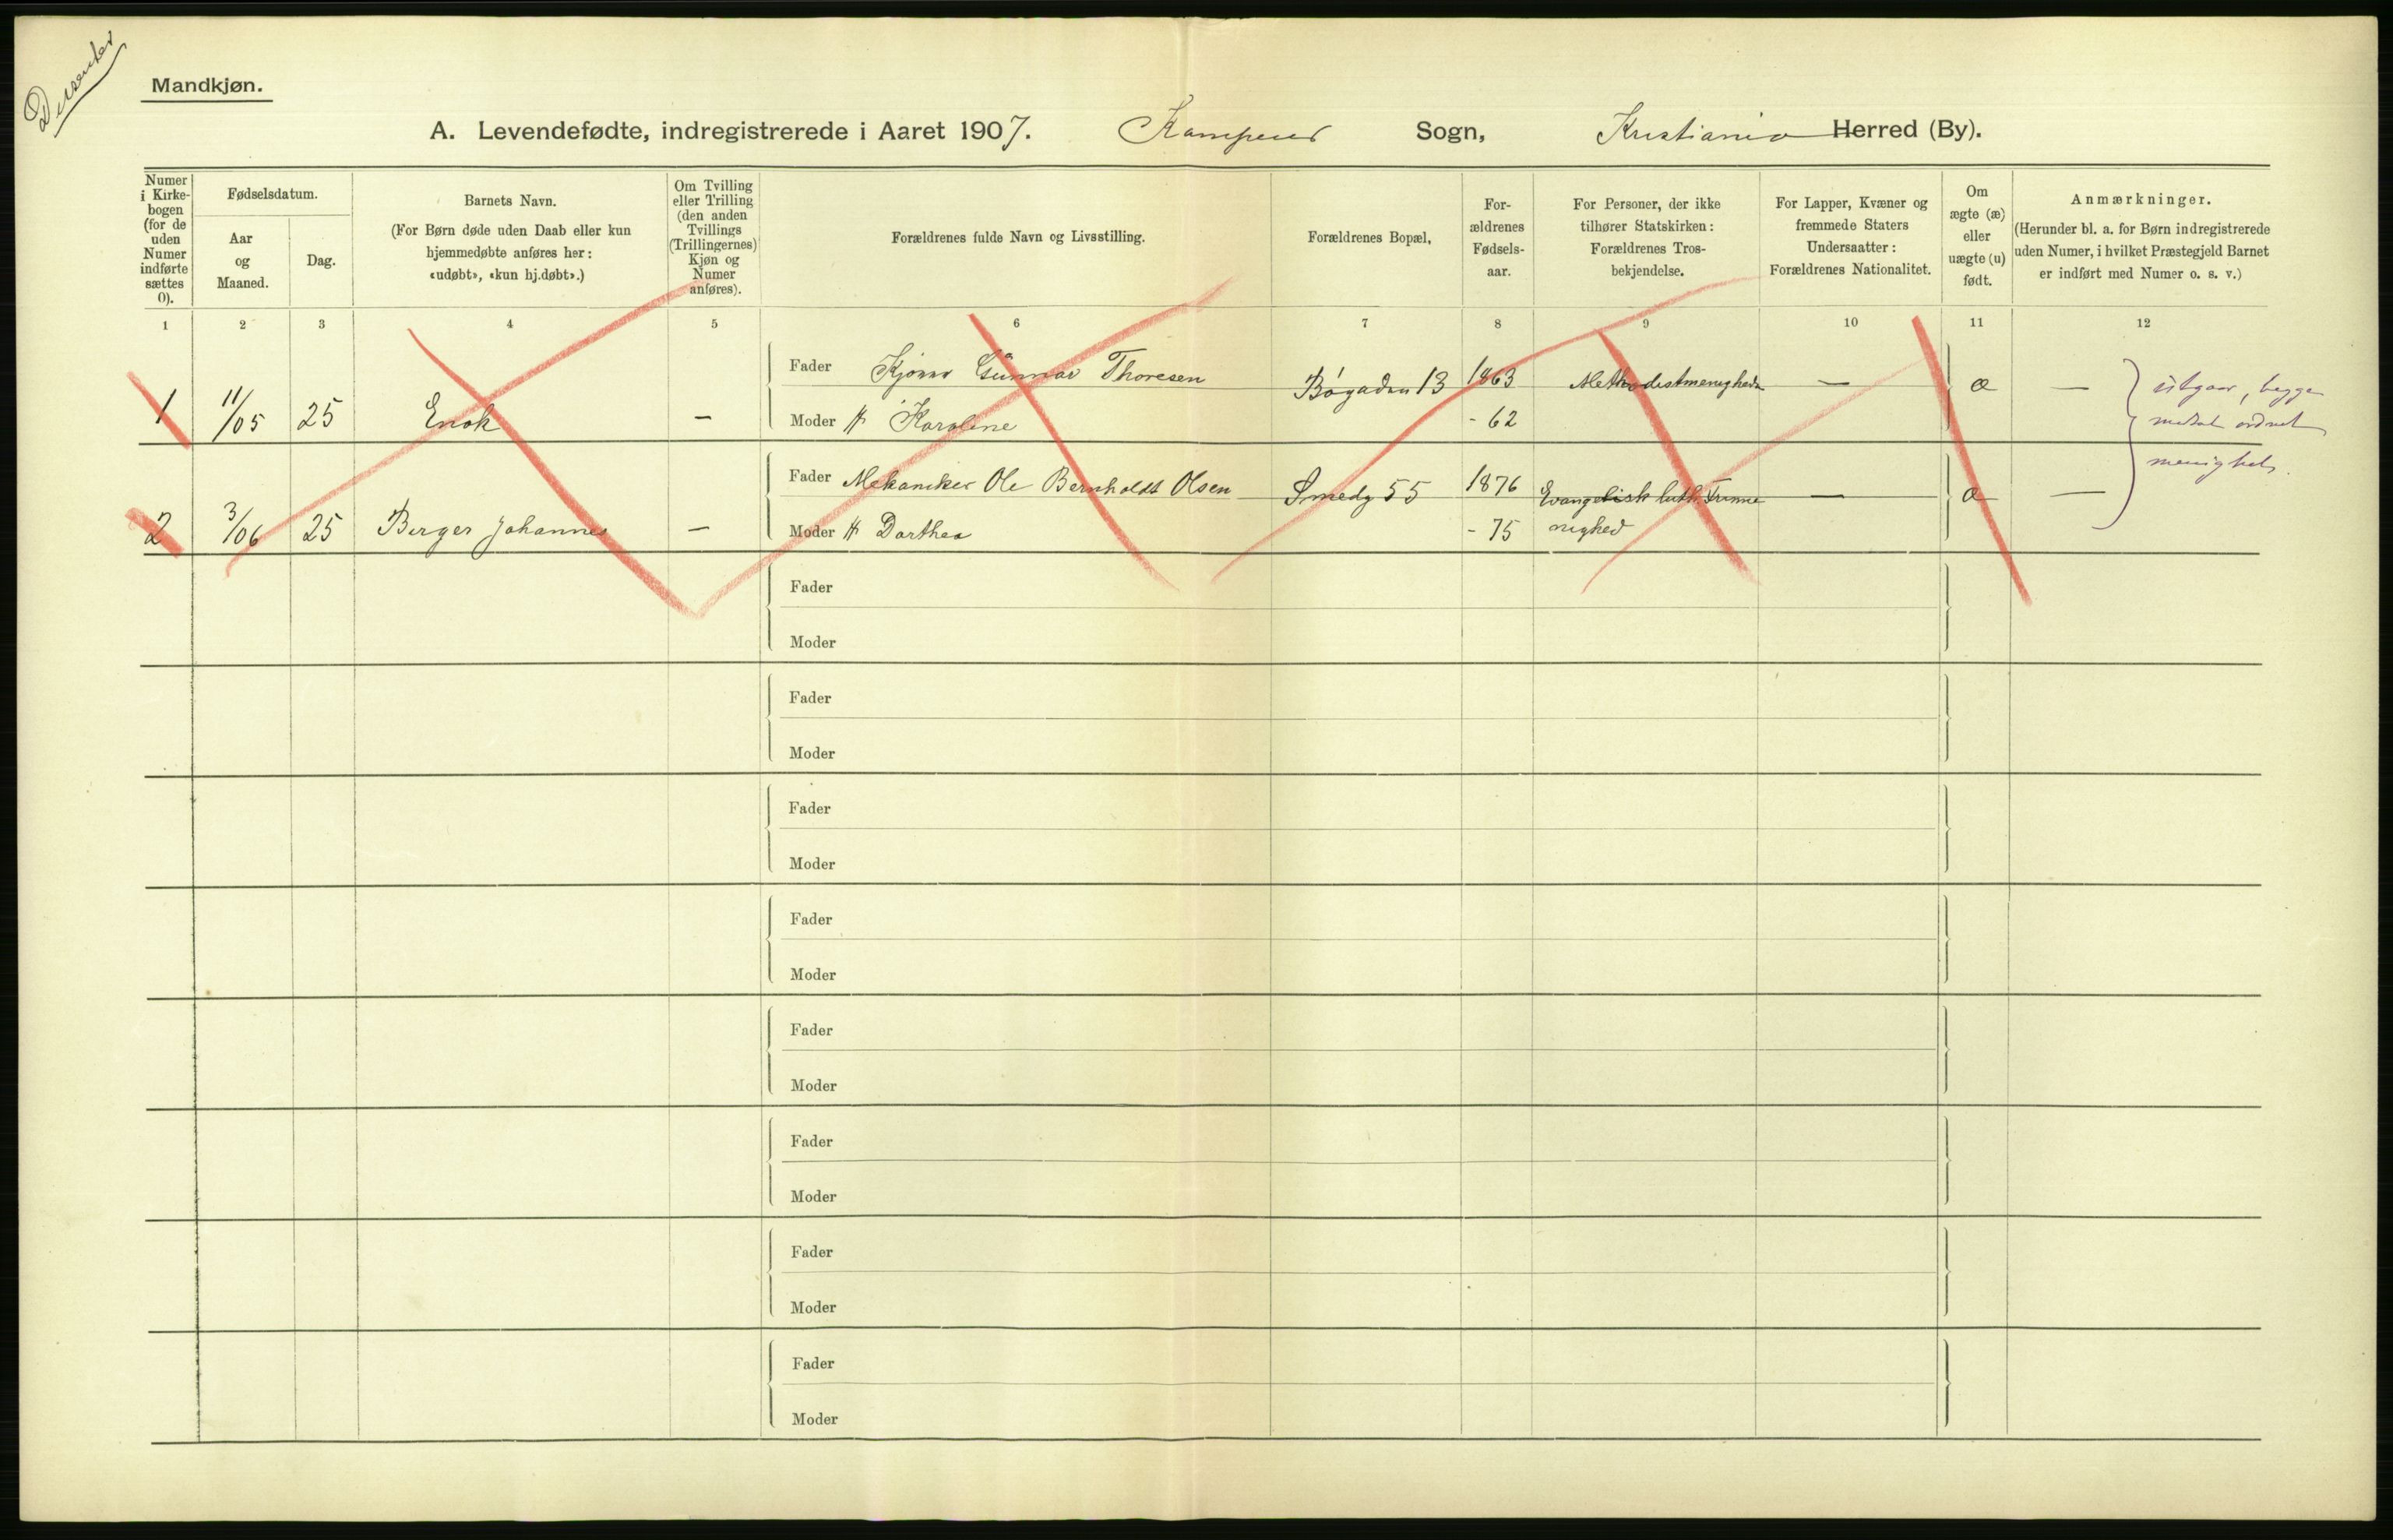 Dissenter
Mandkjøn.
A. Levendefødte, indregistrerede i Aaret 1907. Kampens Sogn, Kristiania Herred (By).
Numer i Kirkebogen (for de uden Numer indførte sættes 0).
Fødselsdatum.
Aar og Maaned.
Dag.
Barnets Navn.
(For Børn døde uden Daab eller kun hjemmedøbte anføres her: «udøbt», «kun hj.døbt».)
Om Tvilling eller Trilling (den anden Tvillings (Trillingernes) Kjøn og Numer anføres).
Forældrenes fulde Navn og Livsstilling.
Forældrenes Bopæl,
Forældrenes Fødselsaar.
For Personer, der ikke tilhører Statskirken: Forældrenes Trosbekjendelse.
For Lapper, Kvæner og fremmede Staters Undersaatter: Forældrenes Nationalitet.
Om ægte (æ) eller uægte (u) født.
Anmærkninger.
(Herunder bl. a. for Børn indregistrerede uden Numer, i hvilket Præstegjeld Barnet er indført med Numer o. s. v.)
1 2 3 4 5 6 7 8 9 10 11 12
Fader Gunnar Thoresen Bøgaden 13 1863 Methodistmenigheden — æ —
1 11/05 25 Enok — Moder H Karoline - 62
Fader Mekaniker Ole Bernholdt Olsen Smedg 55 1876 Evangelisk luth. Frime — æ —
2 3/06 25 Berger Johannes — Moder H Dorthea - 75 nighed
utgaar, begge
medal ordnet
menighet.
Fader
Moder
Fader
Moder
Fader
Moder
Fader
Moder
Fader
Moder
Fader
Moder
Fader
Moder
Fader
Moder